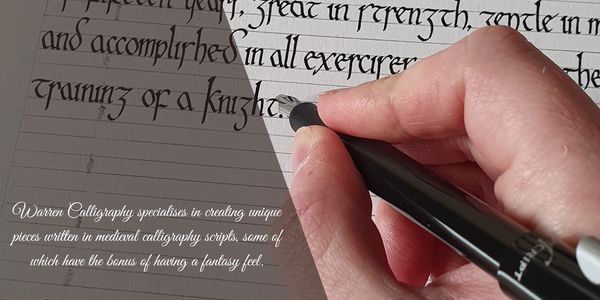 fifteen years, great in strength, gentle in m
and accomplished in all exercises the
training of a knight.
Warren Calligraphy specialises in creating unique
pieces written in medieval calligraphy scripts, some of
which have the bonus of having a fantasy feel.